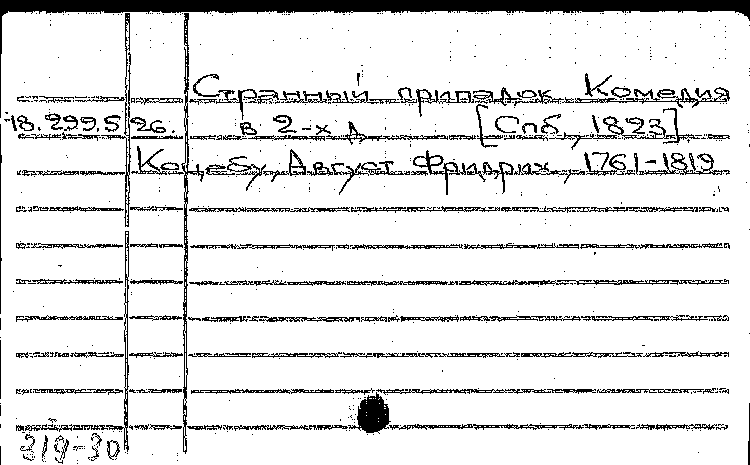 Странный припадок Комедия
18.299.5.26. в 2-х д [Спб, 1823]
Коцебу, Август Фридрих, 1761-1819
319-30